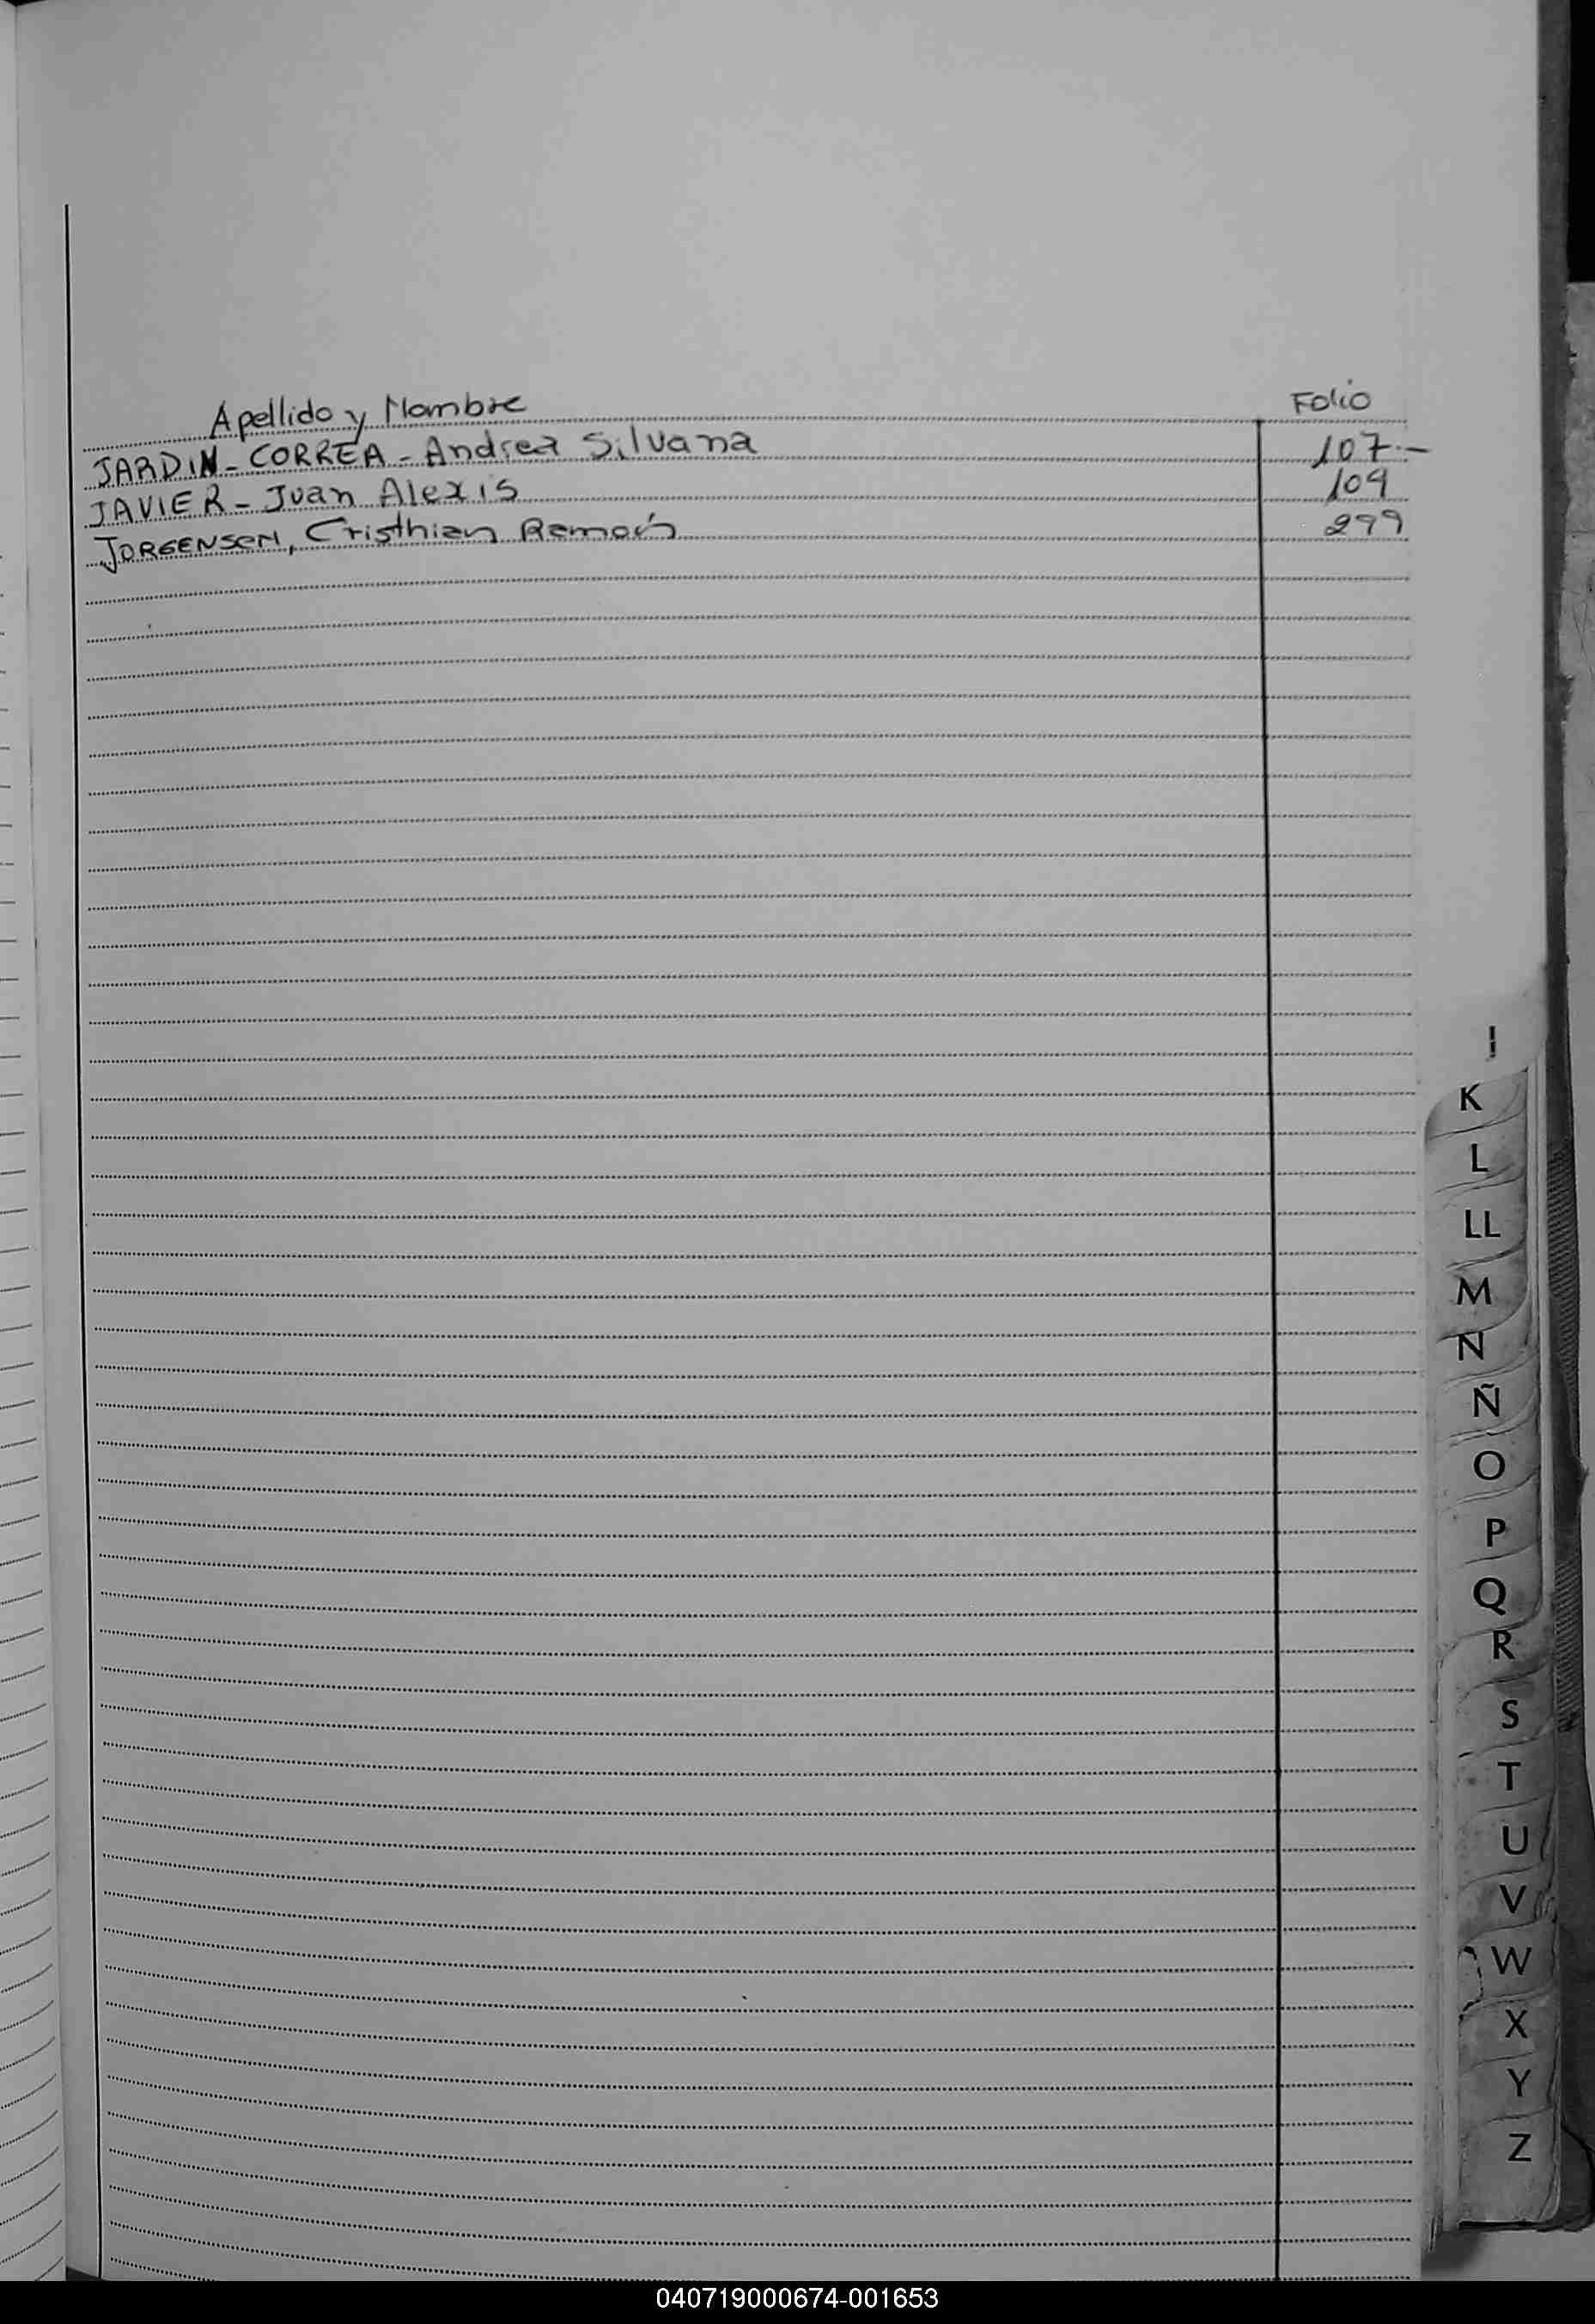 Apellido y Nombre Folio
JARDIN - CORREA - Andrea Silvana 107.-
JAVIER - Juan Alexis 109
JORGENSEN, Cristhian Ramón 299
K
L
LL
M
N
Ñ
O
P
Q
R
S
T
U
V
W
X
Y
Z
040719000674-001653